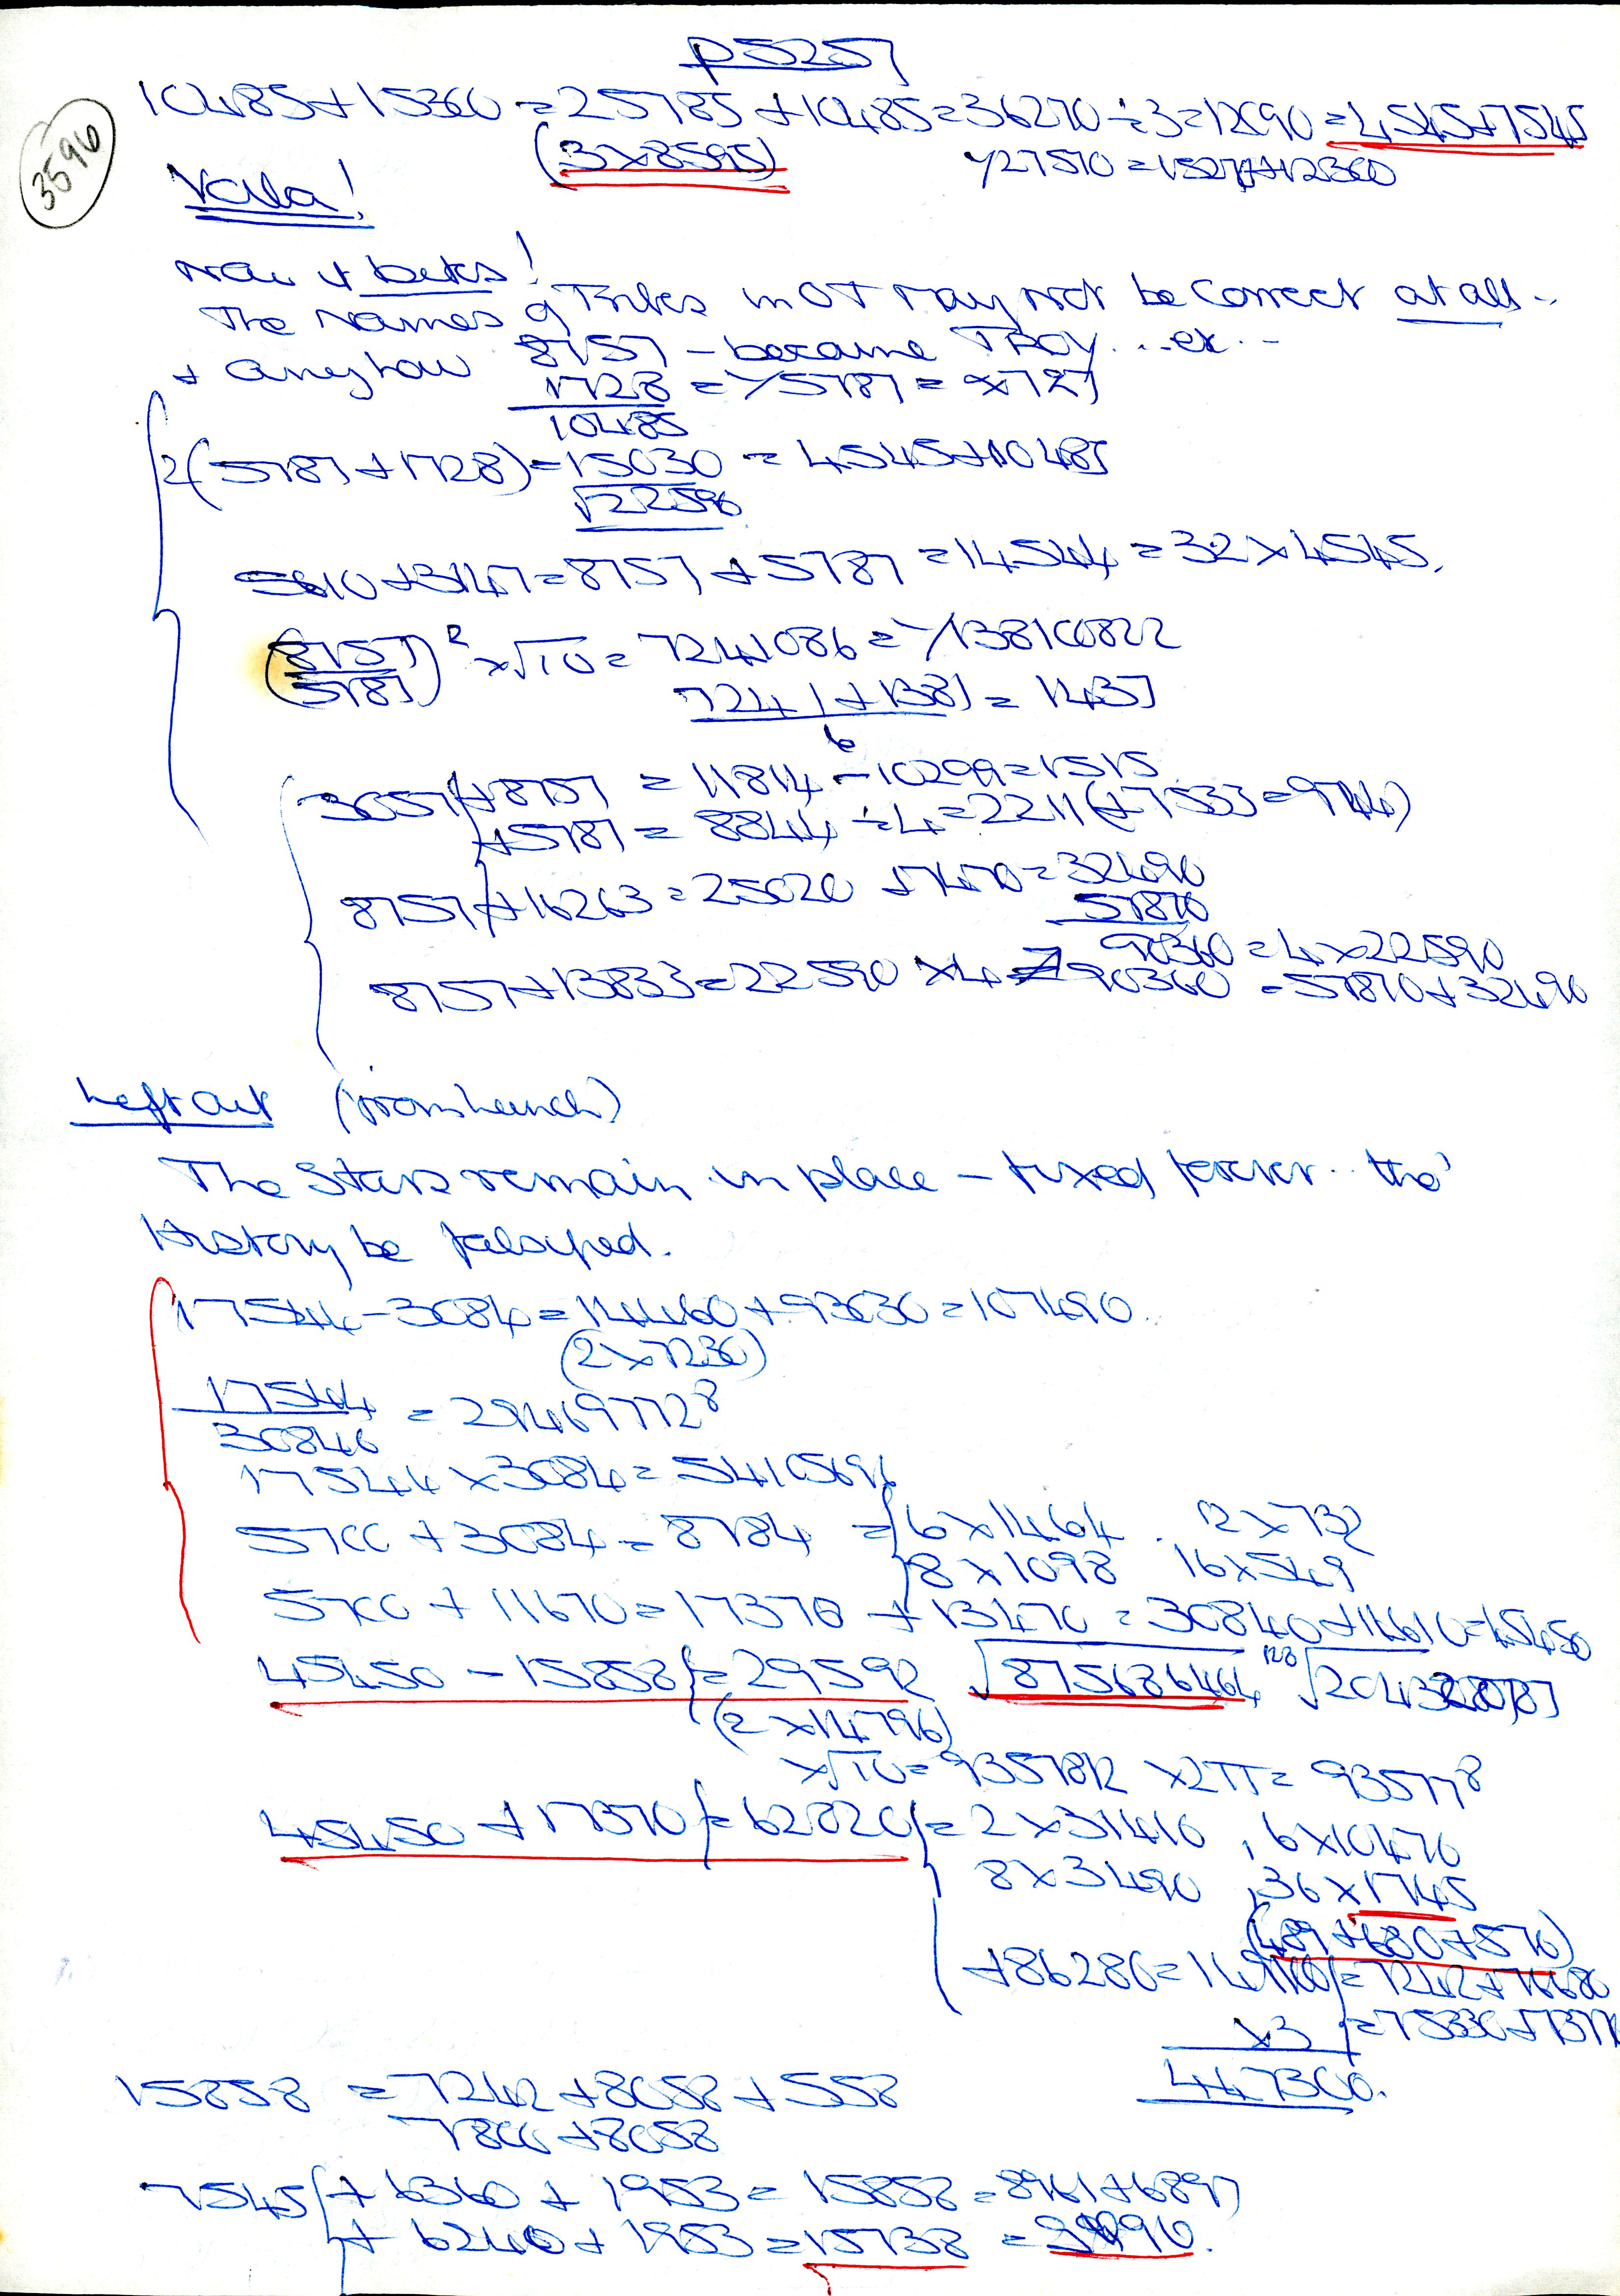 p5257
3596
10485+15300=25785+10485=36270÷3=12090=4545+7545
(3×8595)
Voila!
Now it
The Names of Tribes in OT may not be correct at all..
+ anyhow 8757 - became TROY...ex..
1728 = 
10485
2(5787+1728)=15030 = 4545+10485
√22590
5610+3147=8757+5787=14544=3.2×4545.
(8757/5787)² ×√10= 7241086=
7241+1381=1437
6
3057{+8757 = 11814-10299=1515
+5787=8844÷4=2211(+7533=9744)
8757{+16263=25020+7470=32490
57870
90360=4×22590
8757+13833=22590×4=90360=57870+32490
Left out (from lunch)
The Stars remain in place - fixed forever.. tho'
History be falsified.
17544-3084=14460+93030=107490.
(2×7230)
17544
30846
17544×3084=54105696
5700+3084=8784={6×1464. 12×732
8×1098 16×549
5700+11670=17370+13470=30840+14610=45450
45450-15858}=29592 √875686464
(2×14796)
×√10=9357812 ×2π=
45450+17370}=62820{=2×31410, 6×10470
8×3490, 36×1745
(489+680+576)
+86280=149100
×3
447300.
15858=7242+8058+558
7800+8058
7545{+6360+1953=15858=8961+6897
+6240+1953=15738